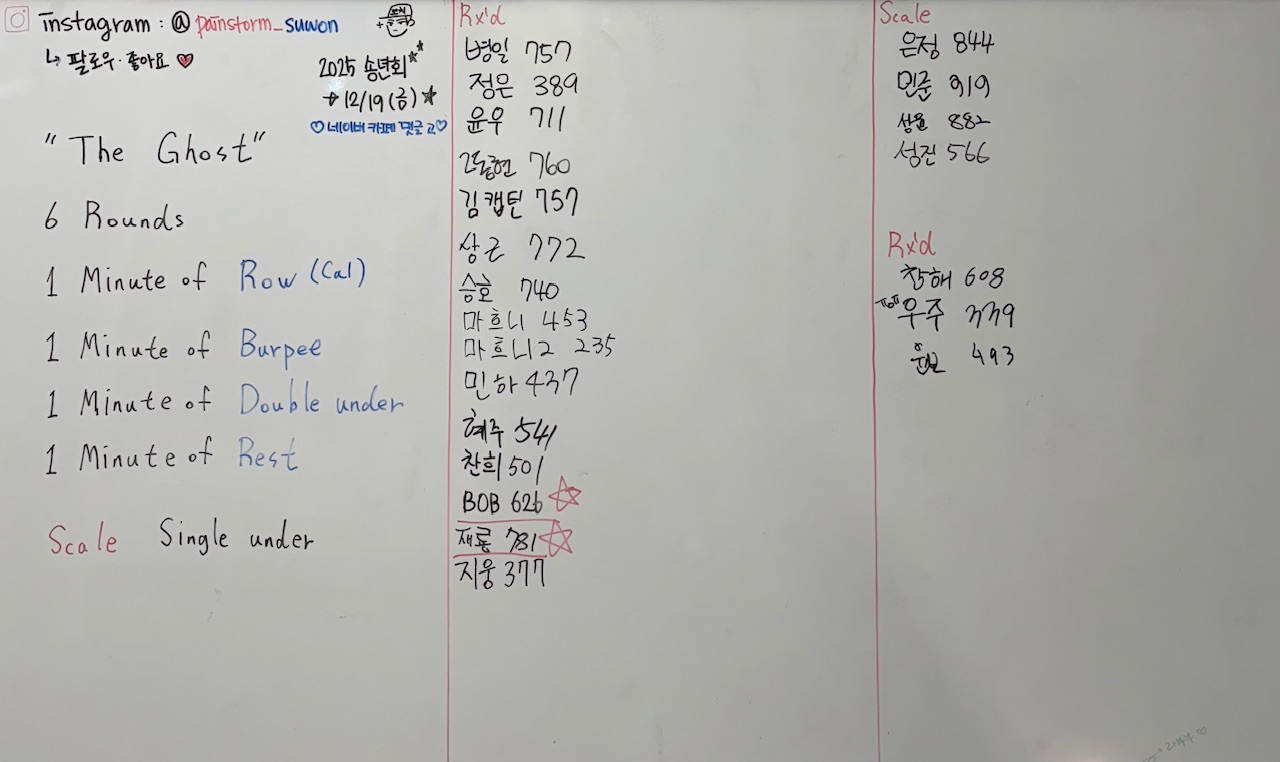 instagram : @painstorm_suwon
↳ 팔로우·좋아요 ♥
2025 송년회
→ 12/19 (금)
♡네이버 카페 댓글 고♡
"The Ghost"
6 Rounds
1 Minute of Row (Cal)
1 Minute of Burpee
1 Minute of Double under
1 Minute of Rest
Scale Single under
Rx'd
병일 757
정은 389
윤우 711
760
김캡틴 757
상근 772
승호 740
마흐니 453
마흐니2 235
민하 437
혜주 541
찬희 501
BOB 626
재룡 781
지웅 377
Scale
은정 844
민준 919
882
성진 566
Rx'd
찬해 608
우주 339
493